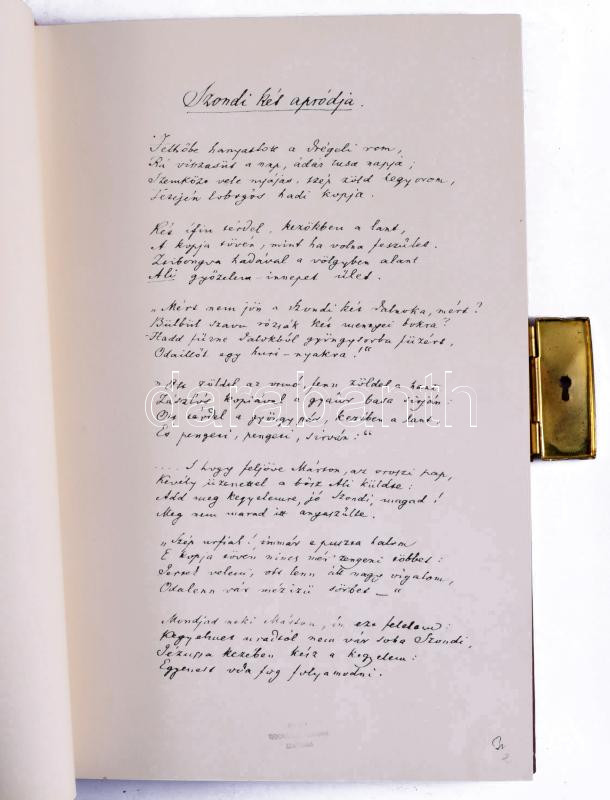 Szondi két apródja.
Felhőbe hanyatlott a drégeli rom,
Rá visszasüt a nap, ádáz tusa napja;
Szemközt vele nyájas, szép zöld hegyorom,
Tetején lobogós hadi kopja.
Két ifiu térdel, kezökben a lant,
A kopja tövén, mint ha volna feszűlet.
Zsibongva hadával a völgyben alant
Ali győzelem-ünnepet ület.
„Mért nem jön a Szondi két dalnoka, mért?
Bülbül szavu rózsák két mennyei bokra?
Hadd fűzne dalokból gyöngysorba füzért,
Odaillőt egy huri-nyakra!"
„Ott zöldel az ormó, fenn zöldel a hant
Zászlós kopiával a gyaur basa sírján:
Ott térdel a gyöngypár, kezében a lant,
És pengeti, pengeti, sírván:"
.... S hogy feljöve Márton, az oroszi pap,
Kevély üzenettel a bősz Ali küldte:
Add meg kegyelemre, jó Szondi, magad!
Meg nem marad itt anyaszülte.
„Szép urfiak! immár e puszta halom
E kopja tövén nincs mér' zengeni többet:
Jertek velem, ott lenn áll nagy vigalom,
Odalenn vár mézizü sörbet –"
Mondjad neki Márton, im ezt felelem:
Kegyelmet uradtól nem vár soha Szondi,
Jézusa kezében kész a kegyelem:
Egyenest oda fog folyamodni.
darabanth